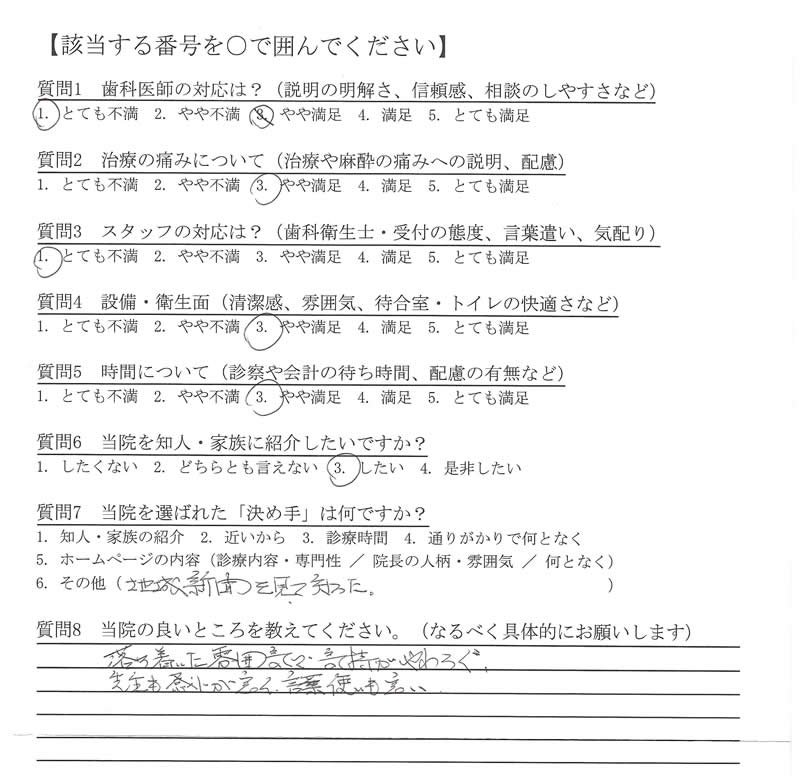 【該当する番号を○で囲んでください】
質問1 歯科医師の対応は？（説明の明解さ、信頼感、相談のしやすさなど）
1. とても不満 2. やや不満 3. やや満足 4. 満足 5. とても満足
質問2 治療の痛みについて（治療や麻酔の痛みへの説明、配慮）
1. とても不満 2. やや不満 3. やや満足 4. 満足 5. とても満足
質問3 スタッフの対応は？（歯科衛生士・受付の態度、言葉遣い、気配り）
1. とても不満 2. やや不満 3. やや満足 4. 満足 5. とても満足
質問4 設備・衛生面（清潔感、雰囲気、待合室・トイレの快適さなど）
1. とても不満 2. やや不満 3. やや満足 4. 満足 5. とても満足
質問5 時間について（診察や会計の待ち時間、配慮の有無など）
1. とても不満 2. やや不満 3. やや満足 4. 満足 5. とても満足
質問6 当院を知人・家族に紹介したいですか？
1. したくない 2. どちらとも言えない 3. したい 4. 是非したい
質問7 当院を選ばれた「決め手」は何ですか？
1. 知人・家族の紹介 2. 近いから 3. 診療時間 4. 通りがかりで何となく
5. ホームページの内容（診療内容・専門性 ／ 院長の人柄・雰囲気 ／ 何となく）
6. その他（地域新聞を見て知った。）
質問8 当院の良いところを教えてください。（なるべく具体的にお願いします）
落ち着いた雰囲気で、気持がやわらぐ。
先生も感じが良く、言葉使いも良い